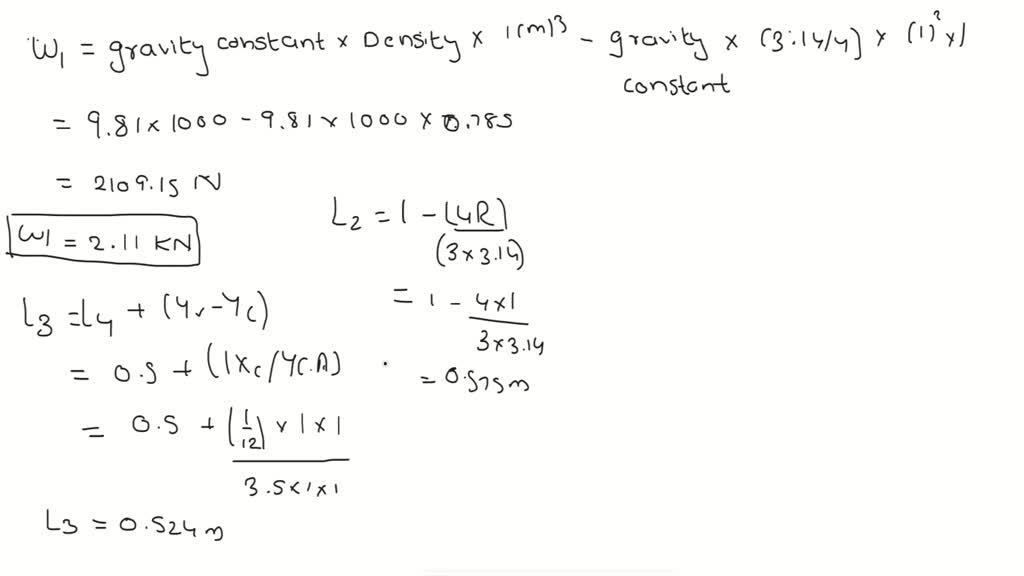 W1 = gravity constant x Density x 1(m)3 - gravity constant x (3.14/4) x (1)2 x 1
= 9.81 x 1000 - 9.81 x 1000 x 0.785
= 2109.15 N
W1 = 2.11 KN
L2 = 1 - (4R) / (3 x 3.14)
= 1 - 4x1 / 3x3.14
= 0.575m
L3 = L4 + (Yr - YC)
= 0.5 + (1xc/YC.A)
= 0.5 + (1/12) x 1 x 1 / 3.5x1x1
L3 = 0.524m